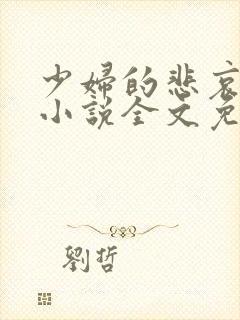 少婦的悲哀
小說全文免
劉哲